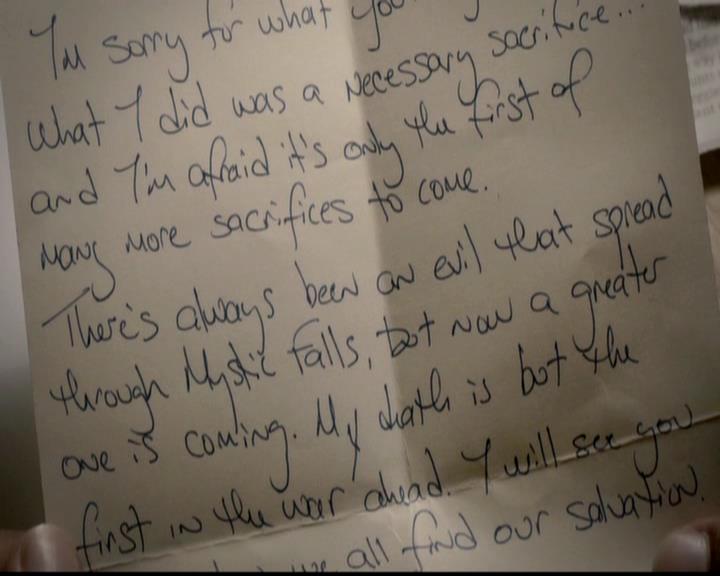 I'm sorry for what you
What I did was a necessary sacrifice...
and I'm afraid it's only the first of
many more sacrifices to come.
There's always been an evil that spread
through Mystic Falls, but now a greater
one is coming. My death is but the
first in the war ahead. I will see you
all find our salvation.